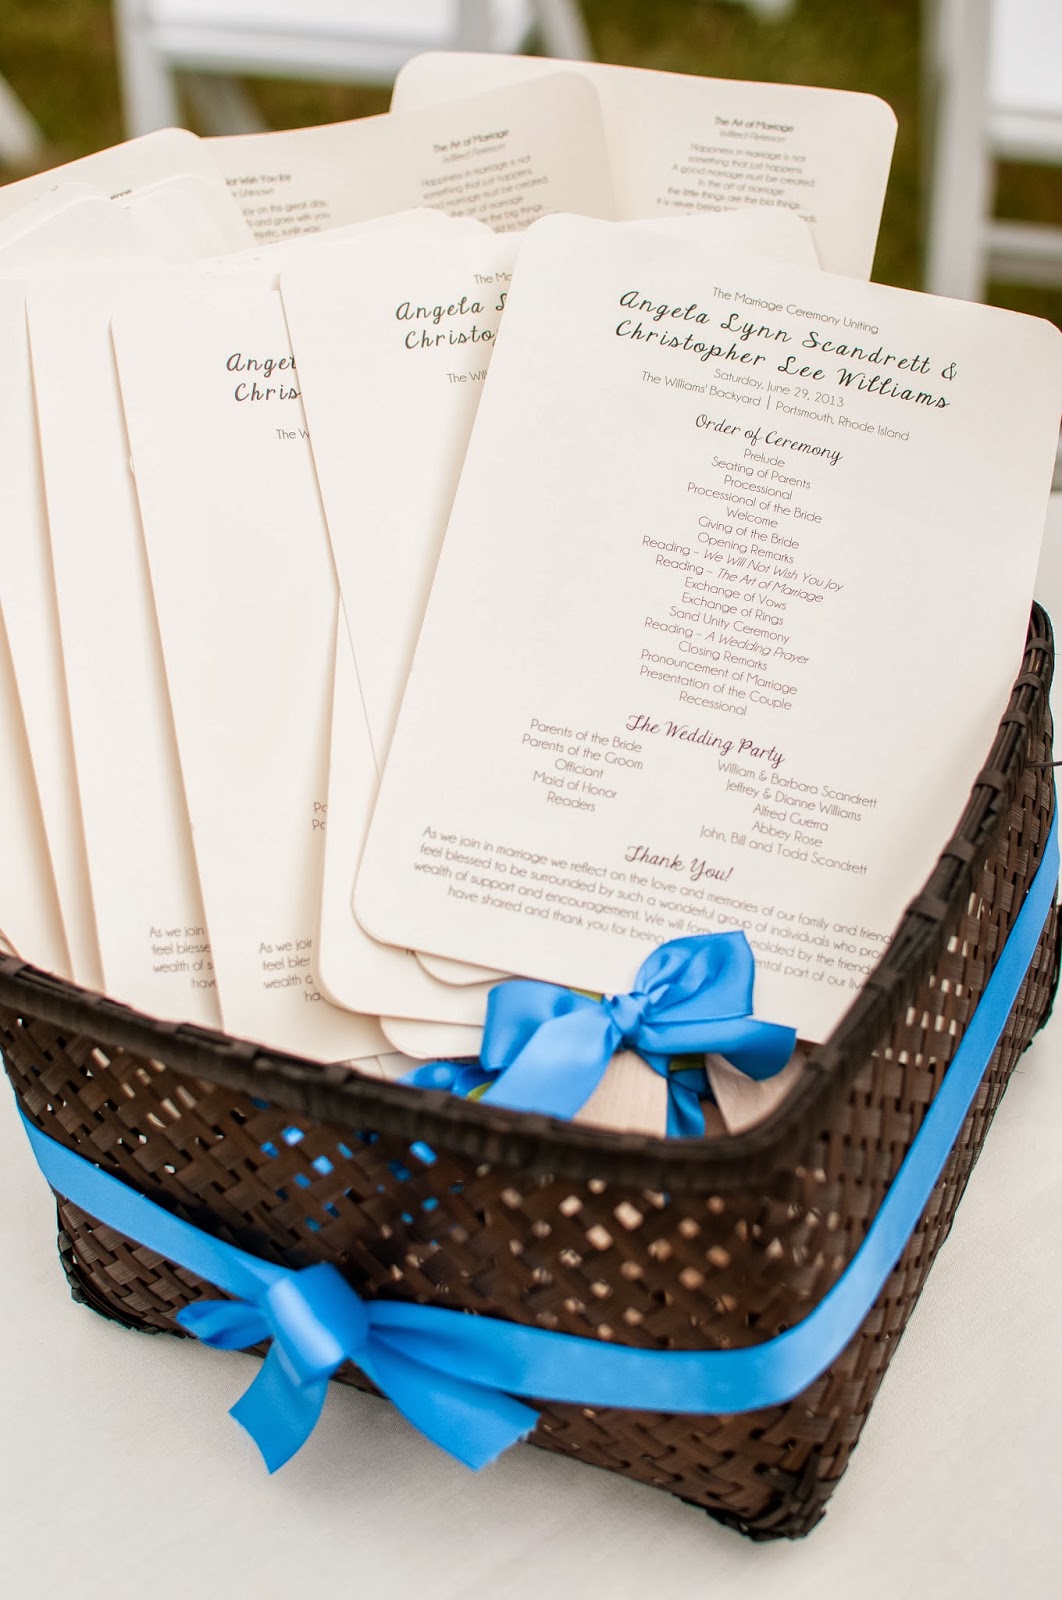 The Art of Marriage
Wilferd Peterson
Happiness in marriage is not
something that just happens.
A good marriage must be created.
In the art of marriage
the little things are the big things...
It is never being
The Art of Marriage
Wilferd Peterson
Happiness in marriage is not
something that just happens.
marriage must be created.
the art of marriage
Not Wish You Joy
Unknown
joy on this great day,
and goes with you
The Marriage Ceremony Uniting
Angela Lynn Scandrett &
Christopher Lee Williams
Saturday, June 29, 2013
The Williams' Backyard | Portsmouth, Rhode Island
Order of Ceremony
Prelude
Seating of Parents
Processional
Processional of the Bride
Welcome
Giving of the Bride
Opening Remarks
Reading - We Will Not Wish You Joy
Reading - The Art of Marriage
Exchange of Vows
Exchange of Rings
Sand Unity Ceremony
Reading - A Wedding Prayer
Closing Remarks
Pronouncement of Marriage
Presentation of the Couple
Recessional
The Wedding Party
Parents of the Bride William & Barbara Scandrett
Parents of the Groom Jeffrey & Dianne Williams
Officiant Alfred Guerra
Maid of Honor Abbey Rose
Readers John, Bill and Todd Scandrett
Thank You!
As we join in marriage we reflect on the love and memories of our family and friends
feel blessed to be surrounded by such a wonderful group of individuals who
wealth of support and encouragement. We will molded by the friends
have shared and thank you for being part of our
The
Angela
Christo
The Will
Angel
Chris
The W
As we join
feel blesse
wealth of s
have
As we joir
feel bles
wealth
ha